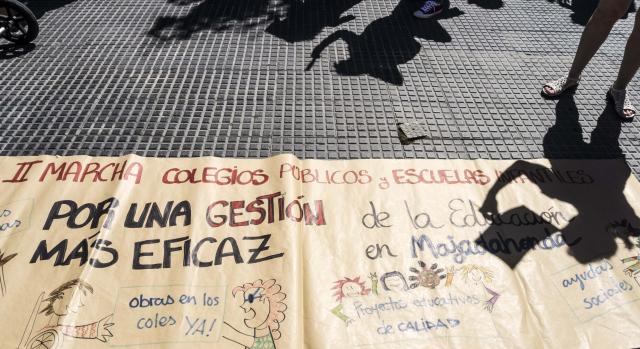 II MARCHA COLEGIOS PÚBLICOS y ESCUELAS INFANTILES
POR UNA GESTIÓN de la Educación
MÁS EFICAZ en Majadahonda
obras en los
coles YA!
Proyectos
educativos
de CALIDAD
ayudas
sociales